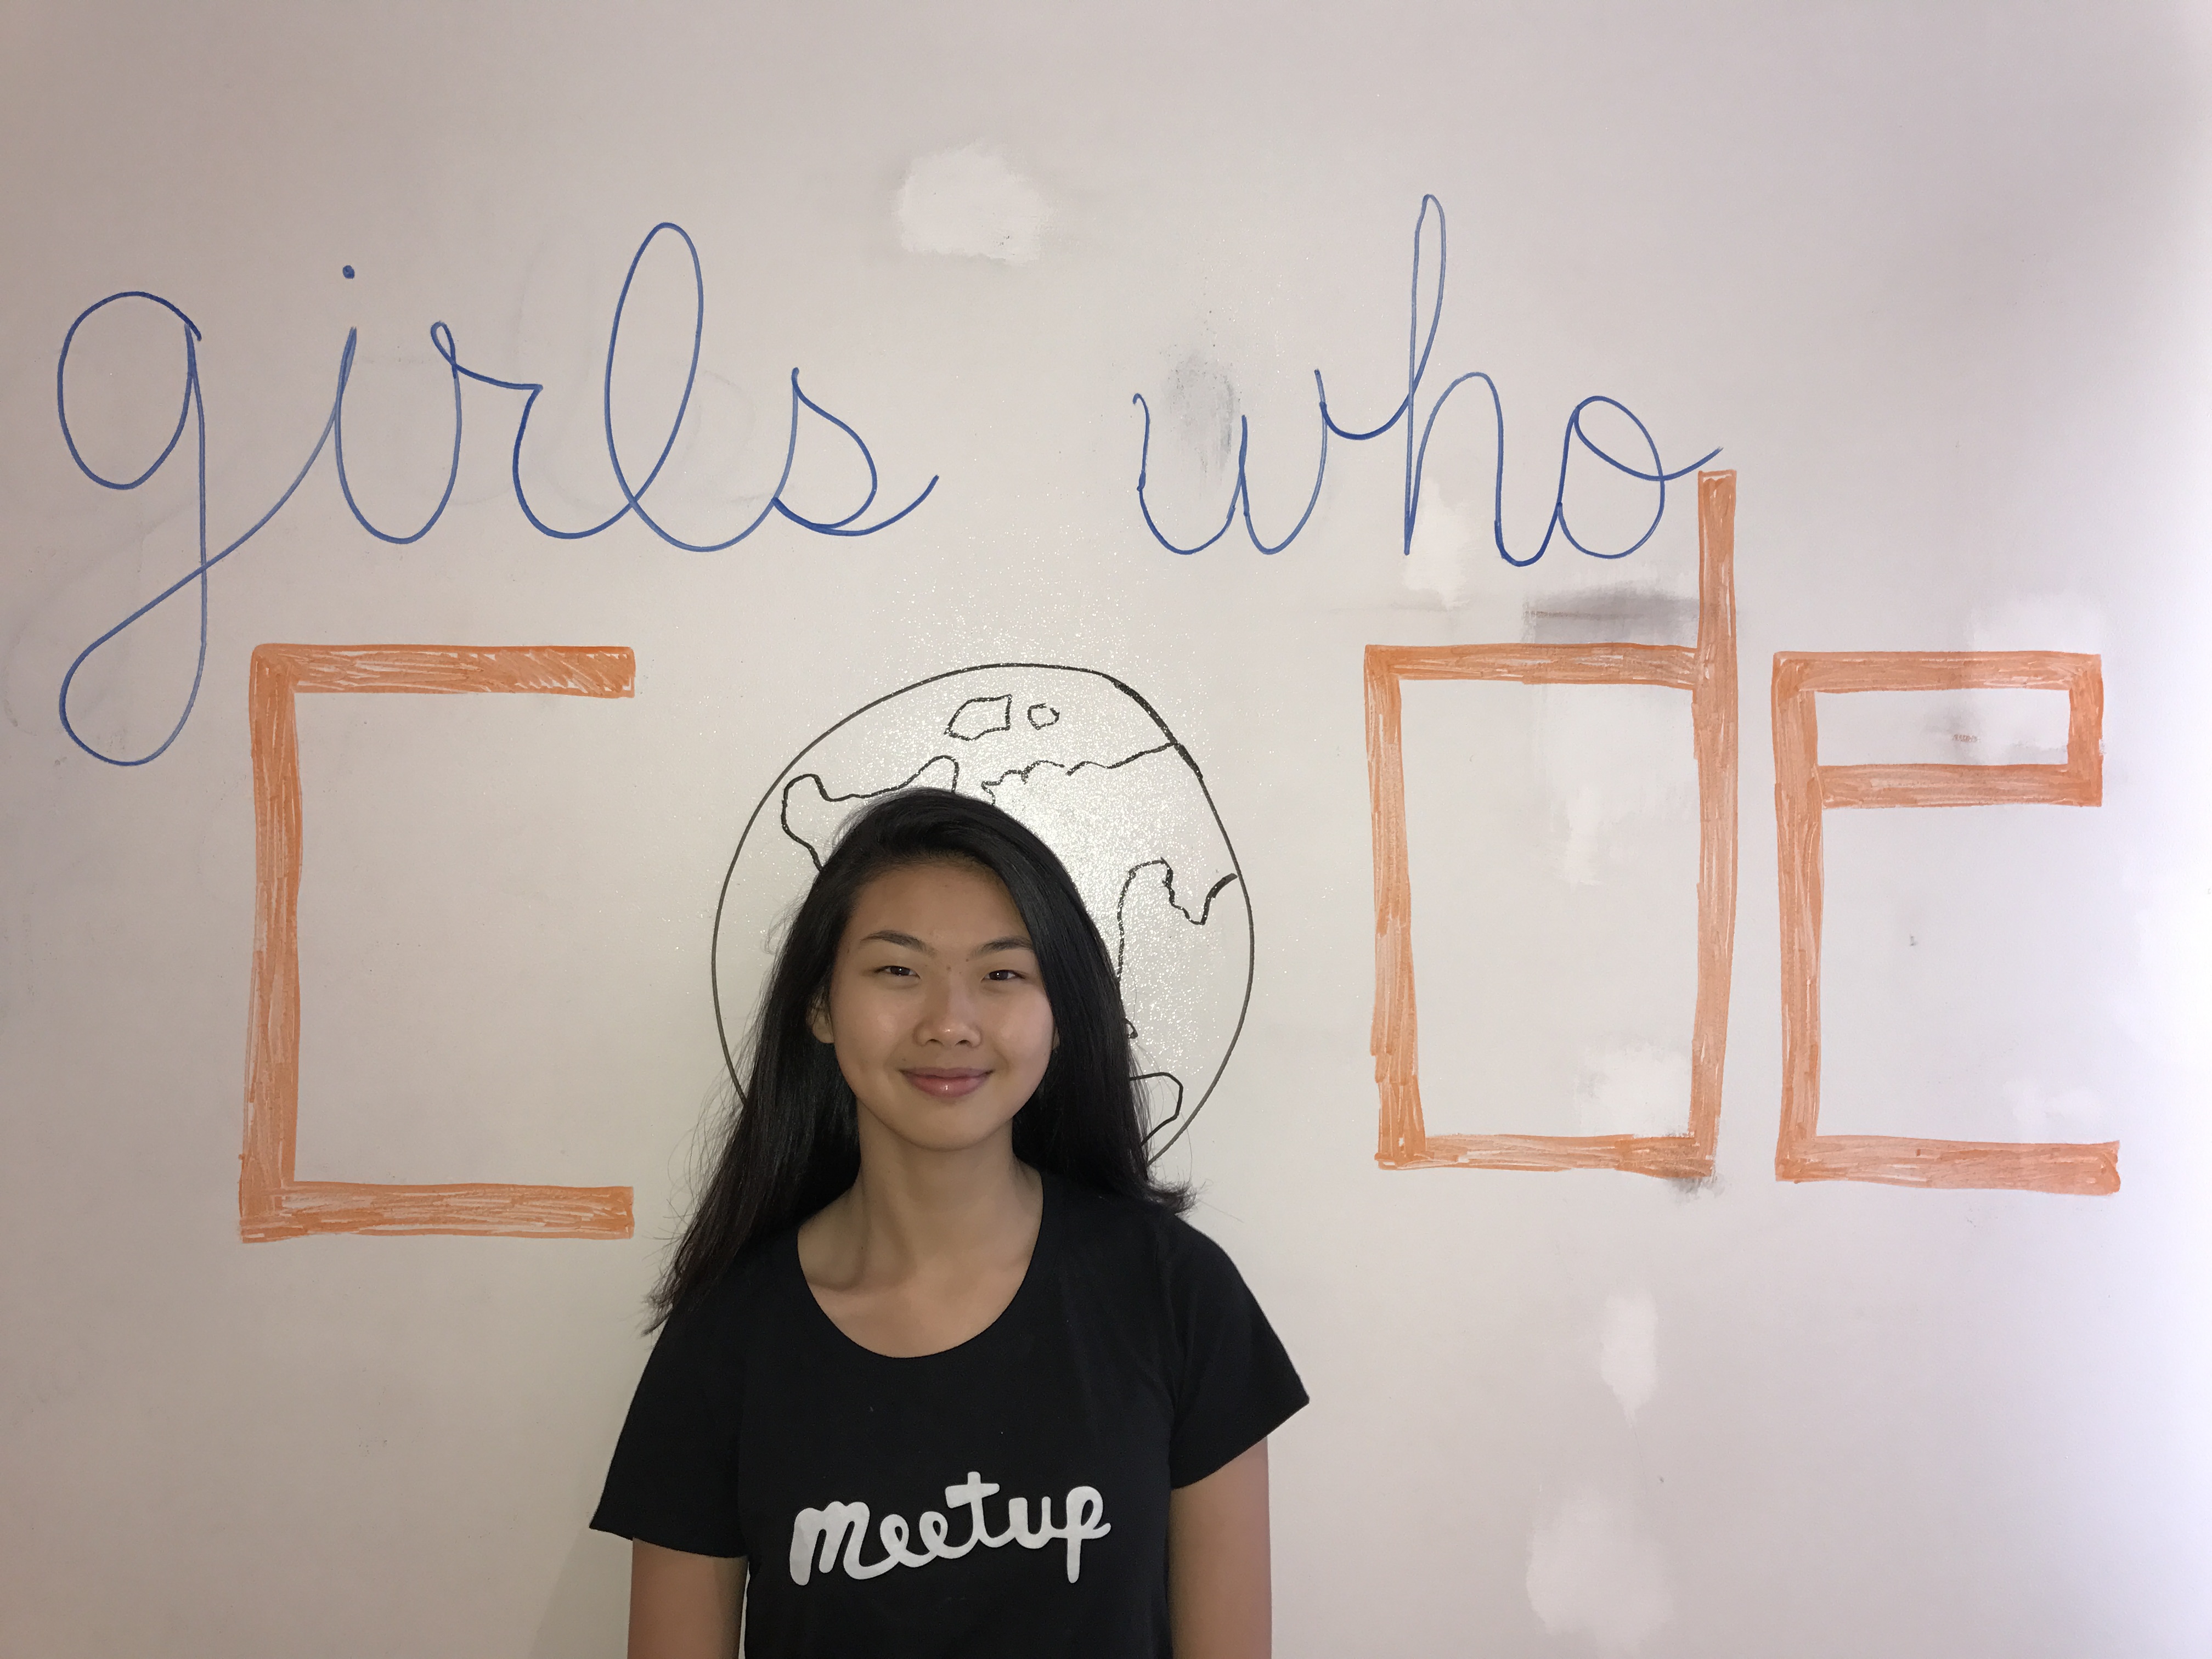 girls who
code
meetup